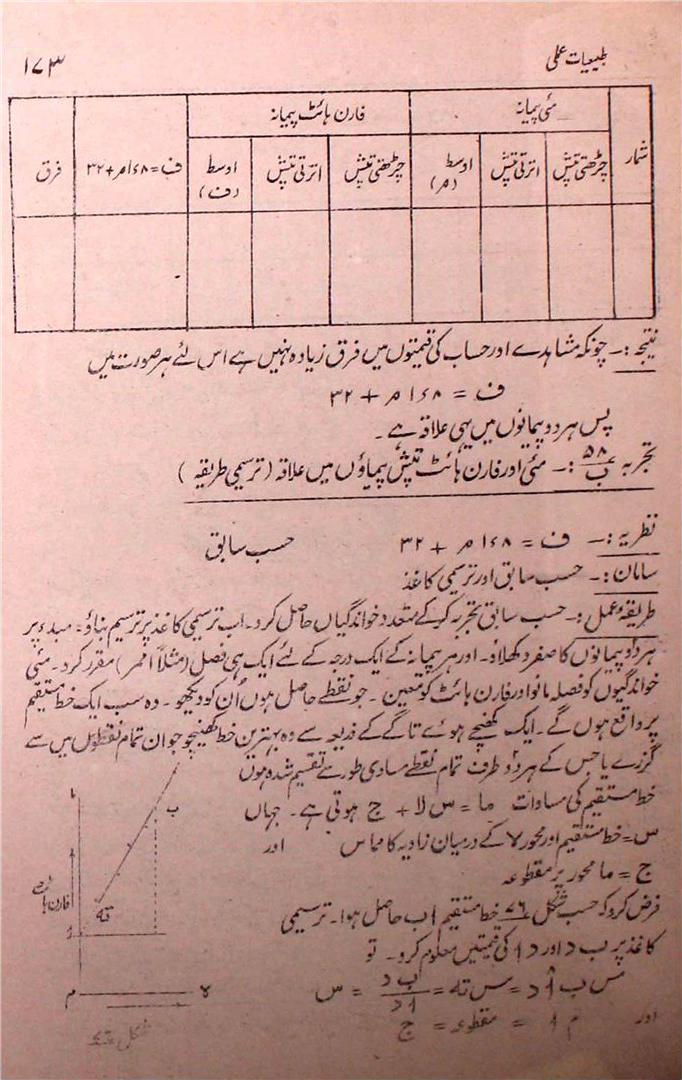 طبیعیات عملی ۱۷۳
شمار مئی پیمانہ فارن ہائٹ پیمانہ ف = ۸ء۱ م + ۳۲ فرق
چڑھتی تپش اترتی تپش اوسط (م) چڑھتی تپش اترتی تپش اوسط (ف)
نتیجہ :۔ چونکہ مشاہدے اور حساب کی قیمتوں میں فرق زیادہ نہیں ہے اس لئے ہر صورت میں
ف = ۸ء۱ م + ۳۲
پس ہر دو پیمانوں میں یہی علاقہ ہے۔
تجربہ ۵۸ ب :۔ مئی اور فارن ہائٹ تپش پیماؤں میں علاقہ (ترسیمی طریقہ)
نظریہ :۔ ف = ۸ء۱ م + ۳۲ حسب سابق
سامان :۔ حسب سابق اور ترسیمی کاغذ
طریقۂ عمل :۔ حسب سابق تجربہ کرکے متعدد خواندگیاں حاصل کرو۔ اب ترسیمی کاغذ پر ترسیم بناؤ۔ مبدء پر
ہر دو پیمانوں کا صفر دکھلاؤ۔ اور ہر پیمانہ کے ایک درجہ کے لئے ایک ہی فصل (مثلاً ۱ مم) مقرر کرو۔ مئی
خواندگیوں کو فصلہ مانو اور فارن ہائٹ کو معین۔ جو نقطے حاصل ہوں اُن کو دیکھو۔ وہ سب ایک خط مستقیم
پر واقع ہوں گے۔ ایک کھنچے ہوئے تاگے کے ذریعہ سے وہ بہترین خط کھینچو جو ان تمام نقطوں میں سے
گزرے یا جس کے ہر دو طرف تمام نقطے مساوی طور سے تقسیم شدہ ہوں
خط مستقیم کی مساوات ما = س لا + ج ہوتی ہے۔ جہاں
س = خط مستقیم اور محور لا کے درمیان زاویہ کا مماس اور
ج = ما محور پر مقطوعہ
فرض کرو کہ حسب شکل ۷۶ خط مستقیم ا ب حاصل ہوا۔ ترسیمی
کاغذ پر ب د اور د ا کی قیمتیں معلوم کرو۔ تو
مس ب ا د = مس تہ = ب د / ا د = س
اور م ا = مقطوعہ = ج
ب
تہ
فارن ہائٹ
ا
م لا
شکل ۷۶